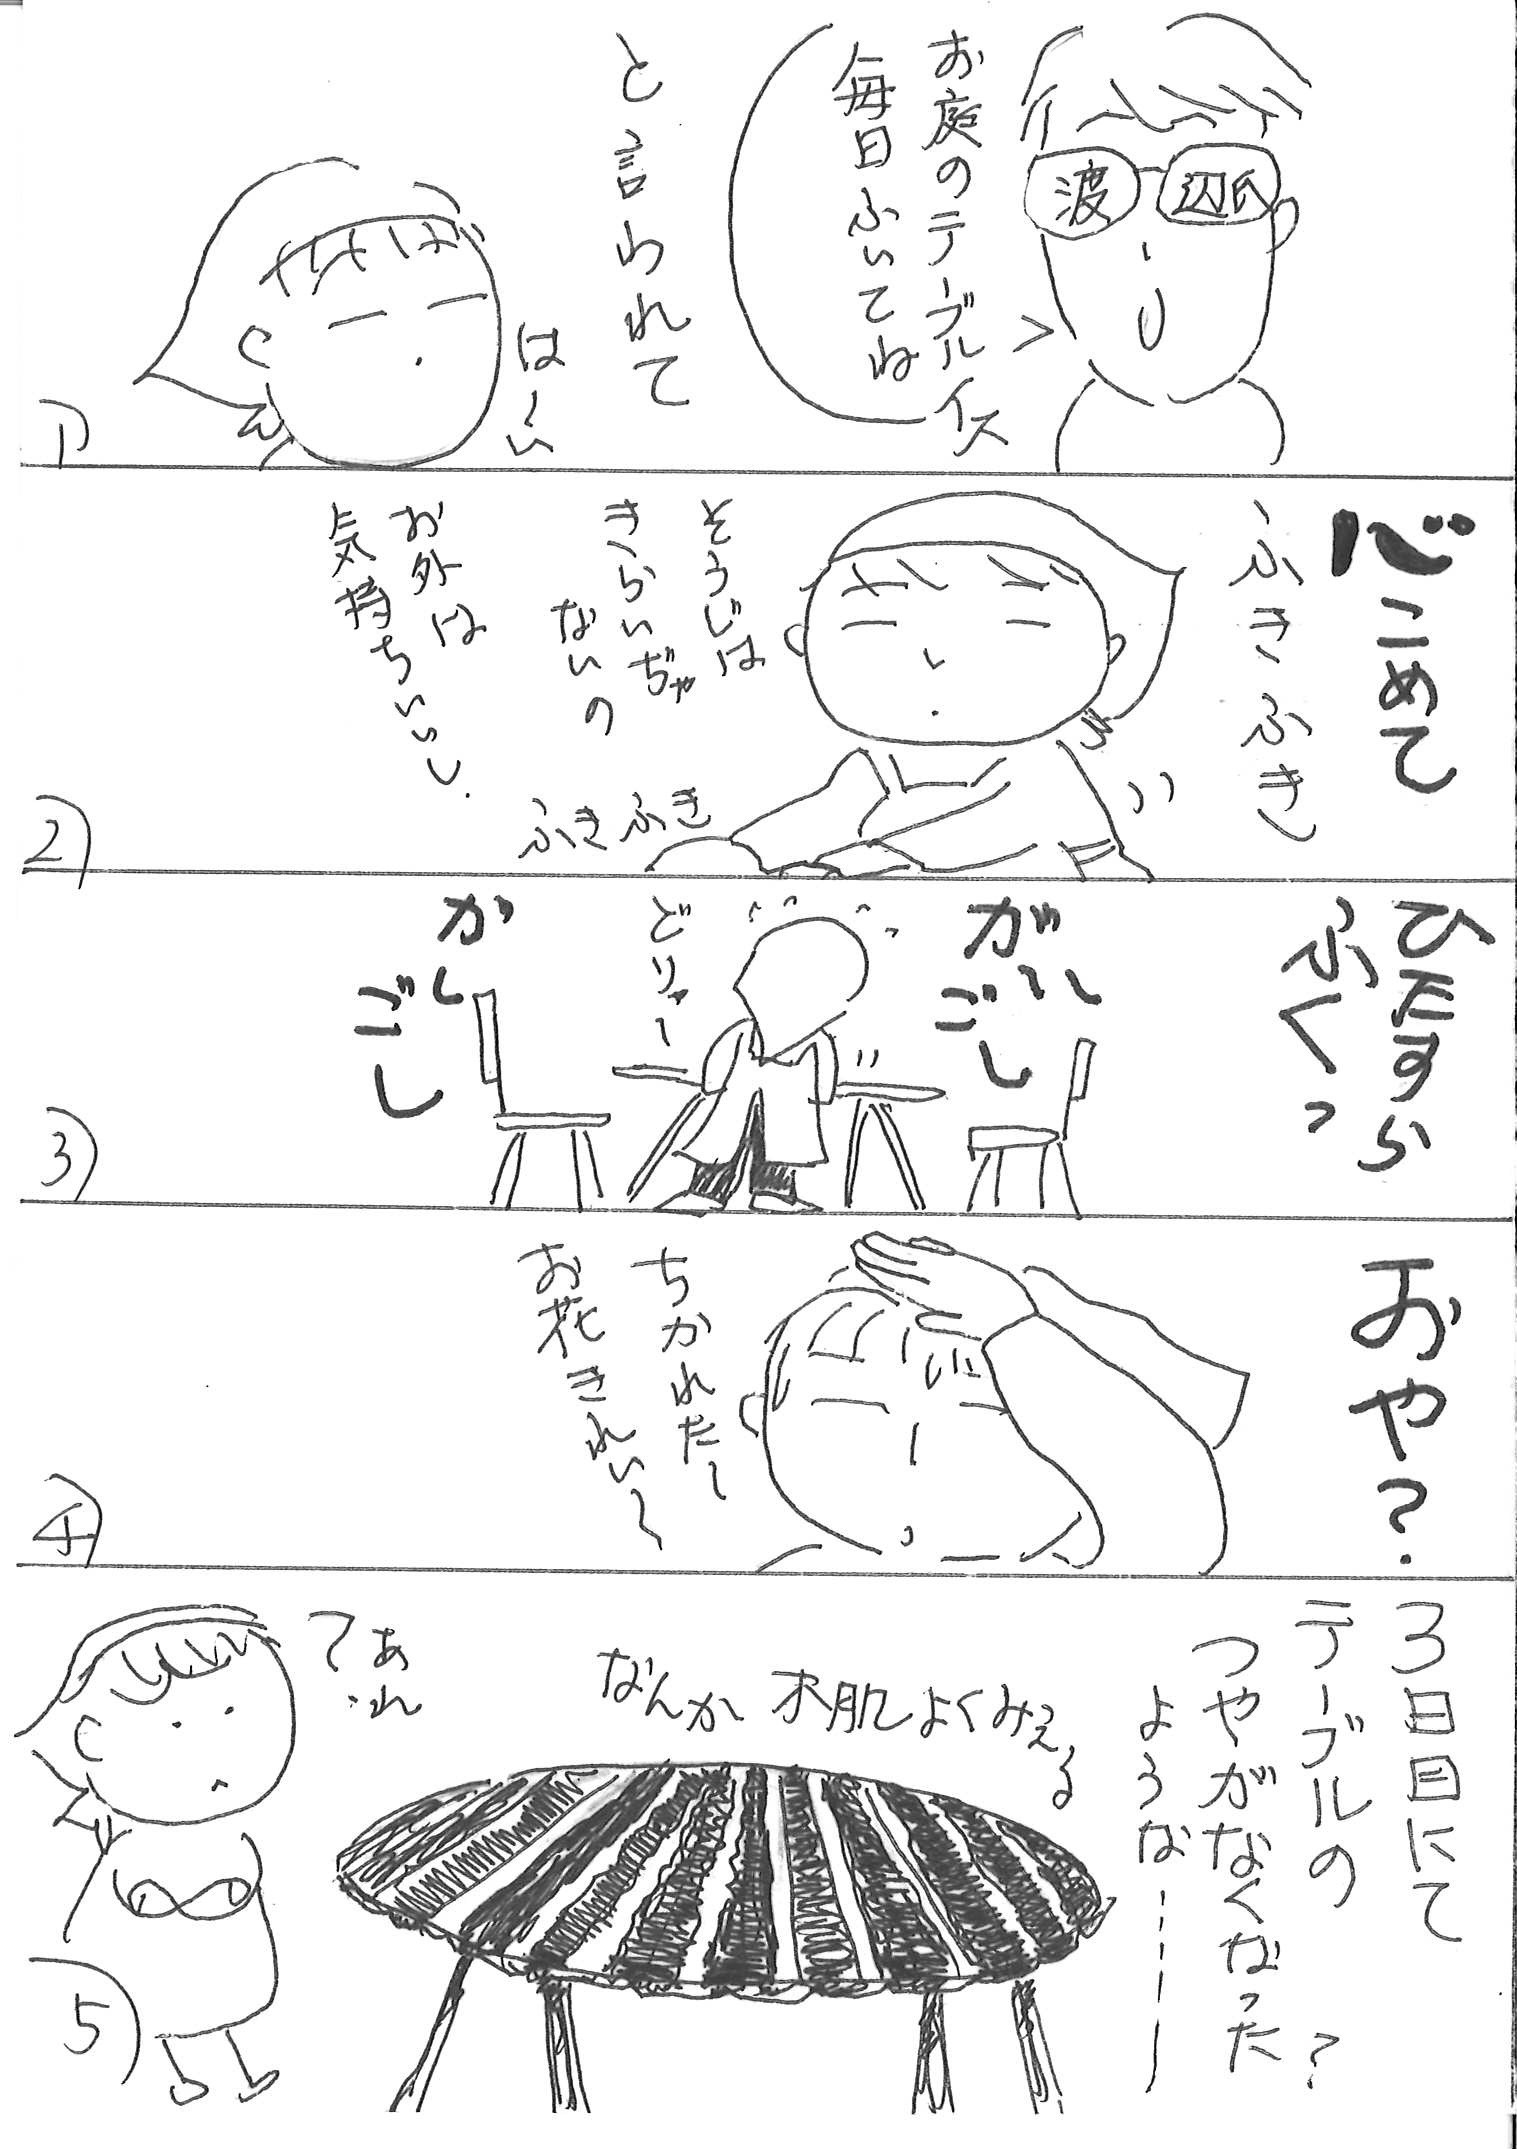 渡辺氏
お庭のテーブル
イス
毎日ふいてね
と言われて
は〜い
1
心こめて
ふきふき
そうじは
きらいぢゃ
ないの
お外は
気持ちいいし.
ふきふき
2
ひたすら
ふくっ
がし
ごし
どりゃー
がし
ごし
3
おや?
ちかれたー
お花きれい〜
4
3日目にて
テーブルの
つやがなくなった?
ような
なんか木肌よくみえる
あれ
?
5